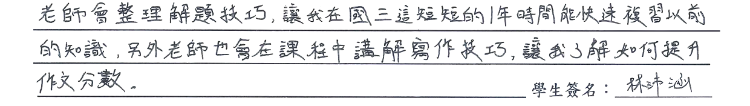 老師會整理解題技巧，讓我在國三這短短的1年時間能快速複習以前
的知識，另外老師也會在課程中講解寫作技巧，讓我了解如何提升
作文分數。
學生簽名：林沛涵